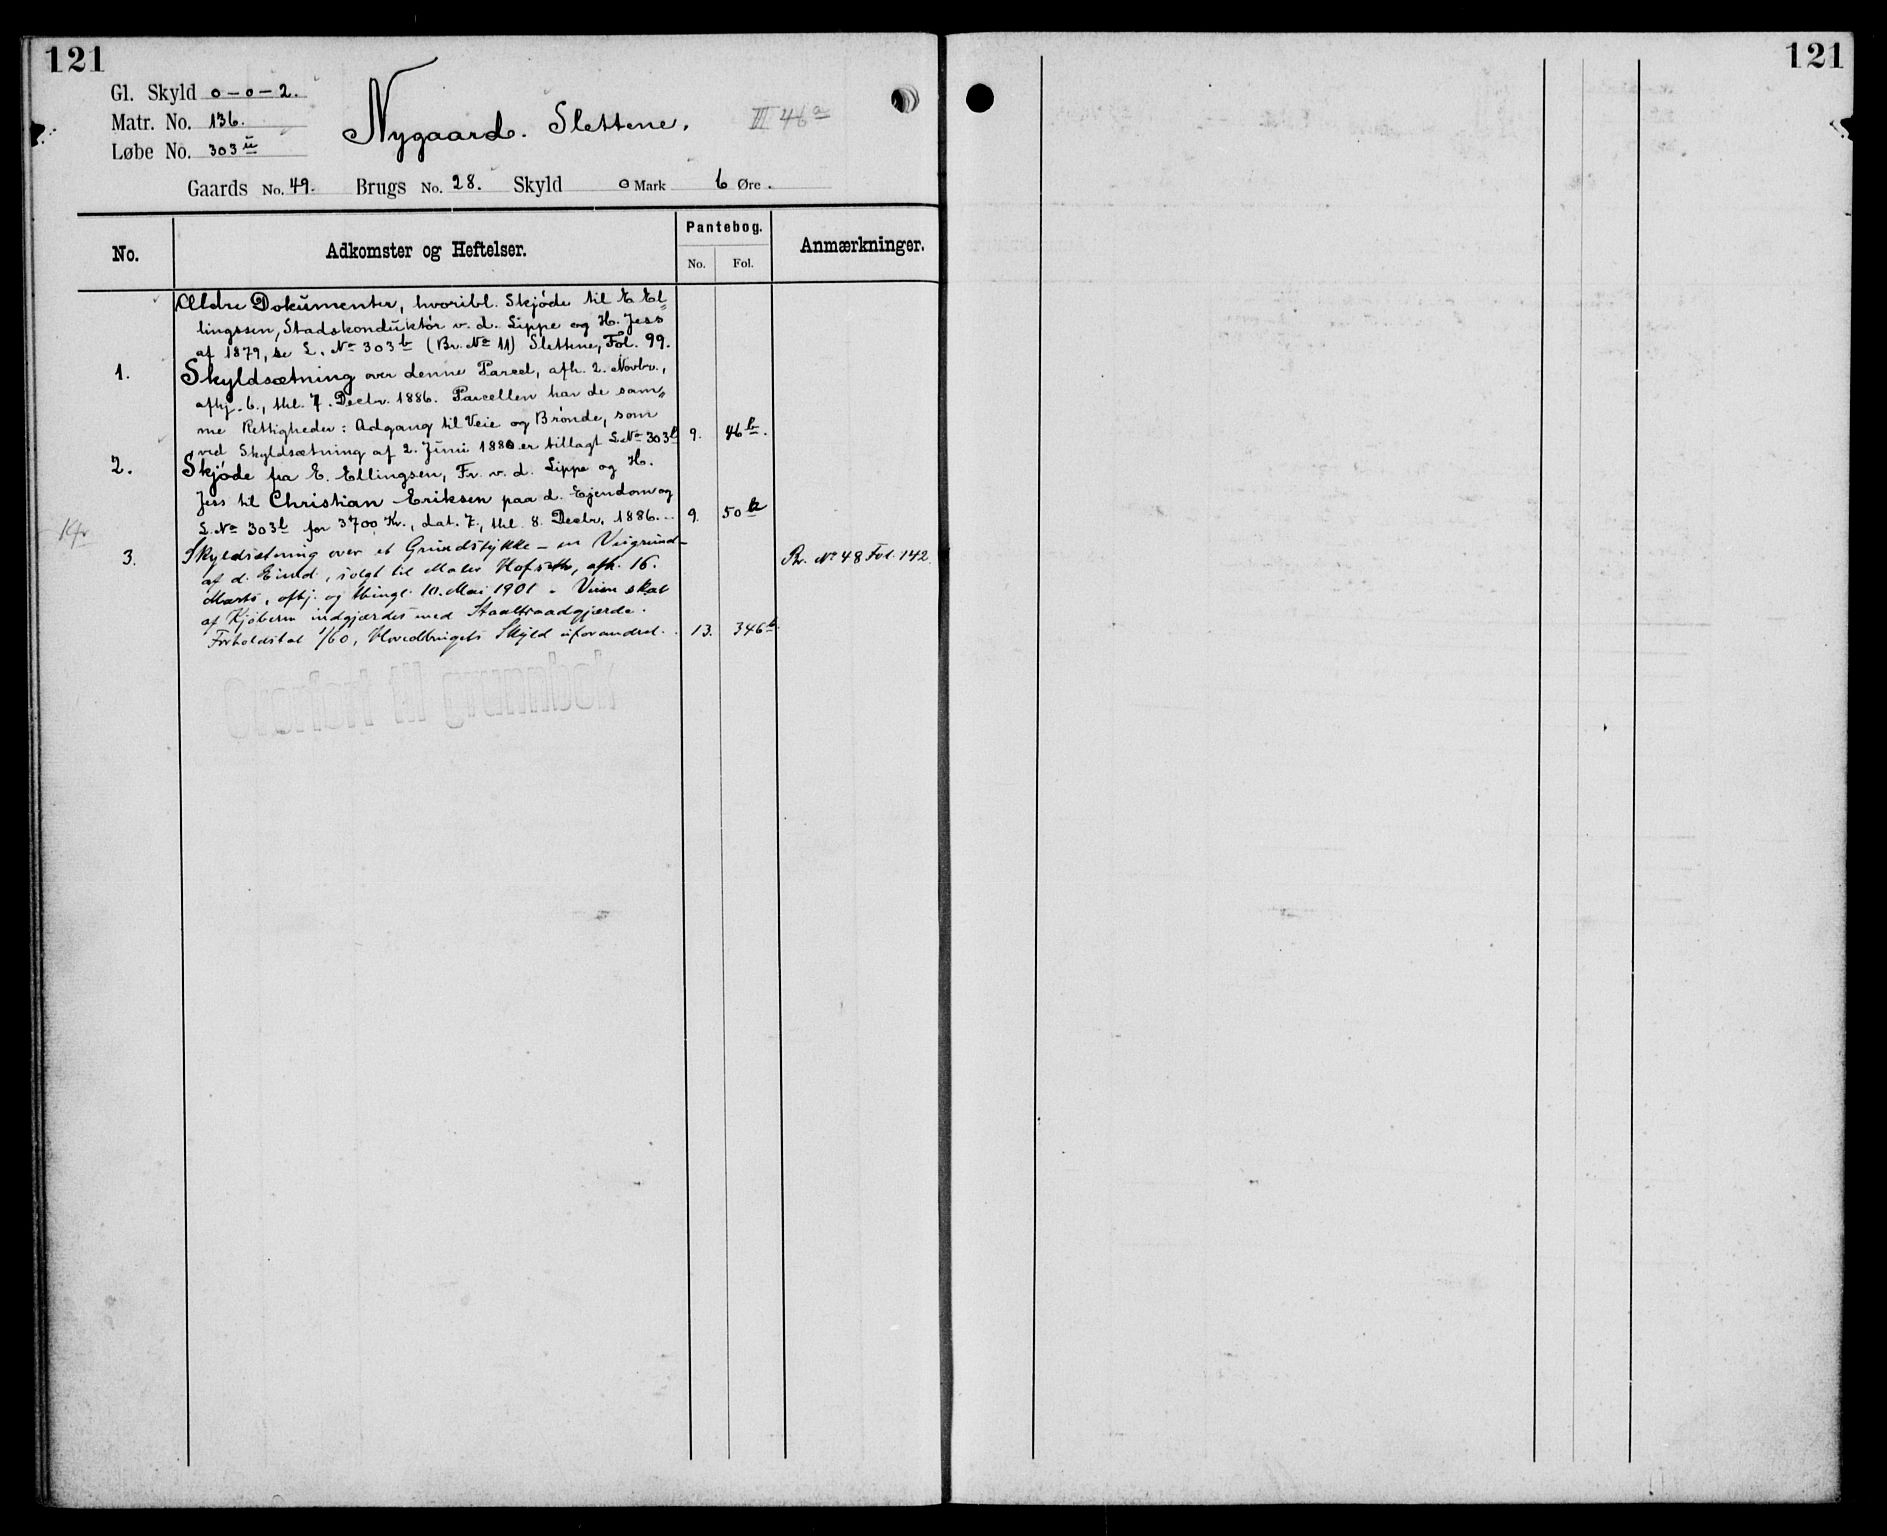 121
121
Gl. Skyld 0-0-2.
Matr. No. 136.
Løbe No. 303 u
Nygaard. Slettene.
III 46 a
Gaards No. 49. Brugs No. 28. Skyld 0 Mark 6 Øre.
No. Adkomster og Heftelser. Pantebog. Anmærkninger.
No. Fol.
Ældre Dokumenter, hvoribl. Skjøde til E. El-
lingssen, Stadskonduktör v. d. Lippe og H. Jess
af 1879, se L. No 303 b (Br. No 11) Slettene, Fol. 99.
1. Skyldsætning over denne Parcel, afh. 2. Novbr.,
afhj. 6., thl. 7. Decbr. 1886. Parcellen har de sam-
me Rettigheder: Adgang til Veie og Brønde, som
ved Skyldsætning af 2. Juni 1880 er tillagt L. No 303 l 9. 46 b.
2. Skjøde fra E. Ellingsen, Fr. v. d. Lippe og H.
Jess til Christian Eriksen paa d. Ejendom og
L. No 303 l for 3700 Kr., dat. 7., thl. 8. Decbr. 1886. 9. 50 b
3. Skyldsætning over et Grundstykke - en Veigrund -
af d. Eiend., solgt til Maler Hofseth, afh. 16.
Marts, afhj. og thingl. 10. Mai 1901. Veien skal
af Kjøberen indgjærdes med Staaltraadgjærde.
Forholdstal 1/60, Hovedbrugets Skyld uforandret. 13. 346 b.
Br. No 48 Fol. 142.
Overført til grunnbok